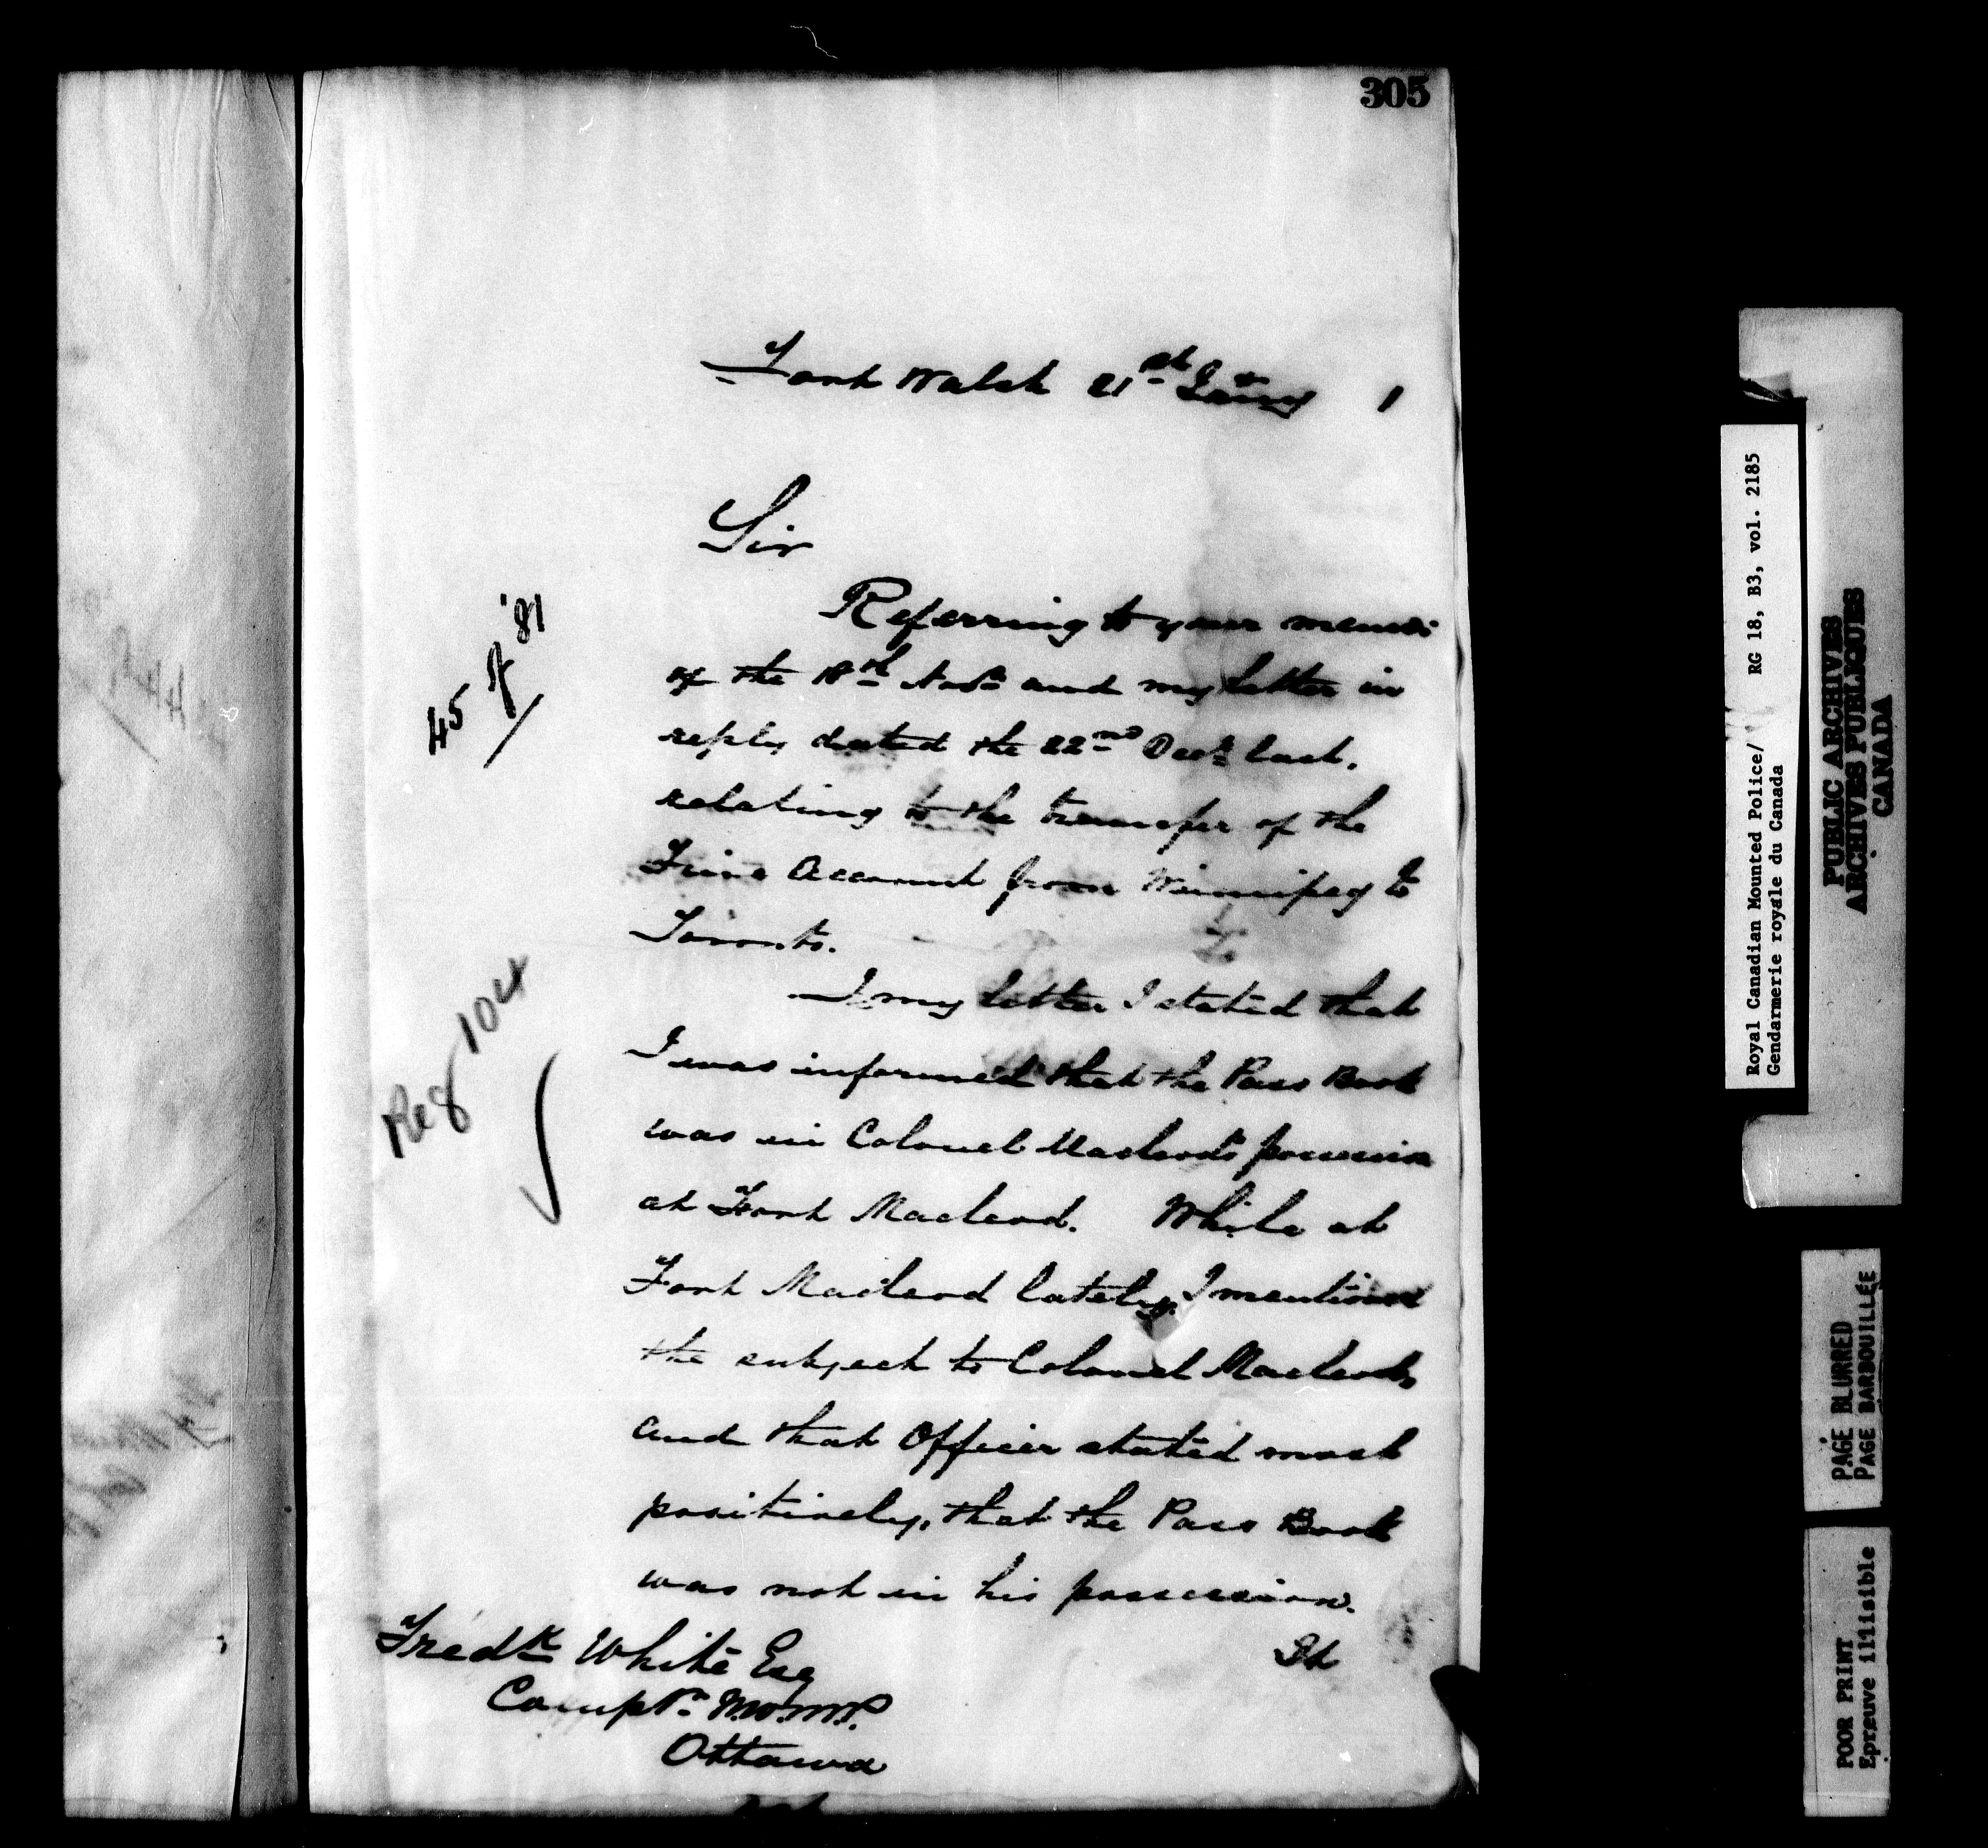 305
Fort Walsh 21st Jany 1
Sir
45 of '81
Referring to your memo:
of the 18th Novr and my letter in
reply dated the 22nd Decr last.
relating to the transfer of the
Fine Account from Winnipeg to
Toronto.
I my letter I stated that
I was informed that the Pass Book
was in Colonel Macleod's possession
at Fort Macleod. While at
Reg 104
Fort Macleod lately, I mentioned
the subject to Colonel Macleod,
and that Officer stated most
positively, that the Pass Book
was not in his possession.
Fredk White Esq
Comptr. N.W.M.P.
Ottawa
Royal Canadian Mounted Police/ RG 18, B3, vol. 2185
Gendarmerie royale du Canada
PUBLIC ARCHIVES
ARCHIVES PUBLIQUES
CANADA
PAGE BLURRED
PAGE BARBOUILLÉE
POOR PRINT
Epreuve illisible